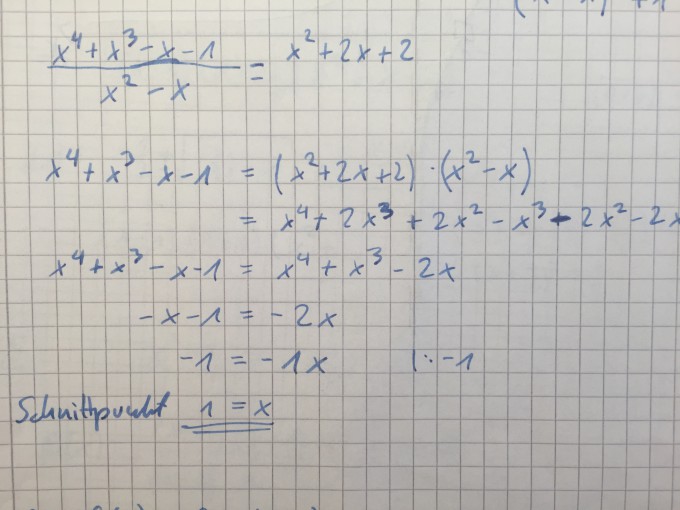 x⁴ + x³ - x - 1 / x² - x = x² + 2x + 2
x⁴ + x³ - x - 1 = (x² + 2x + 2) · (x² - x)
= x⁴ + 2x³ + 2x² - x³ - 2x² - 2x
x⁴ + x³ - x - 1 = x⁴ + x³ - 2x
-x - 1 = -2x
-1 = -1x |: -1
Schnittpunkt 1 = x